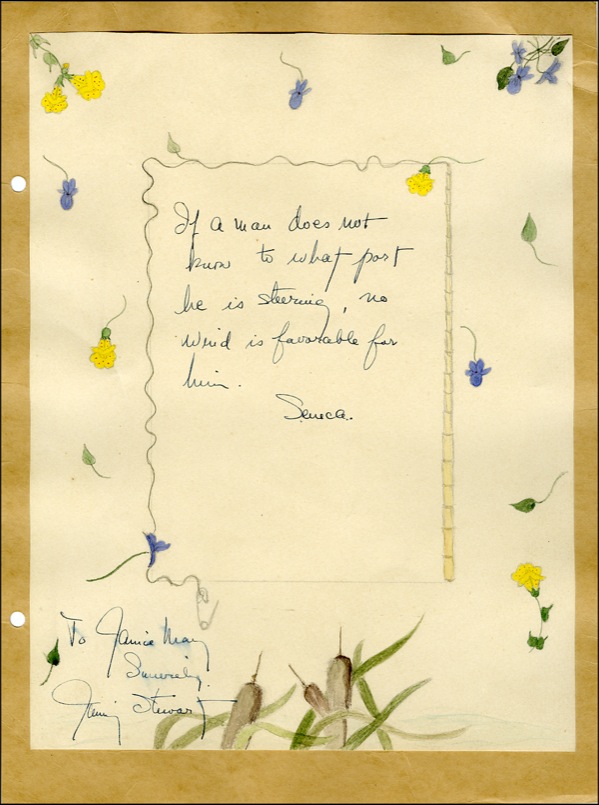 If a man does not
know to what port
he is steering, no
wind is favorable for
him.
Seneca.
To Jamie May
Sincerely,
Jimmy Stewart